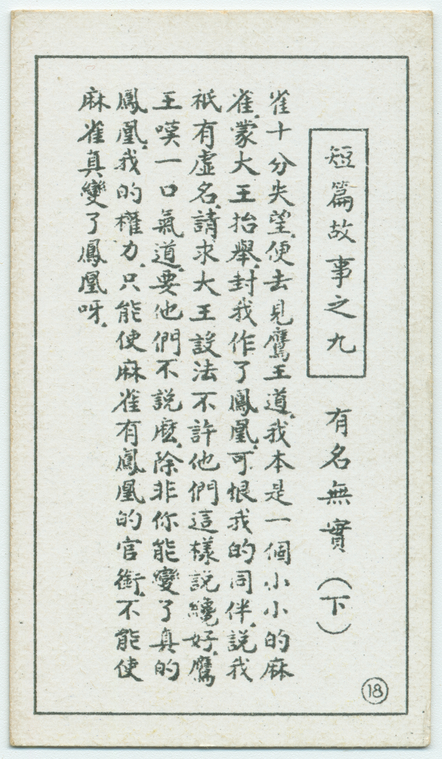 短篇故事之九 有名無實(下)
雀十分失望、便去見鷹王道、我本是一個小小的麻
雀、蒙大王抬舉、封我作了鳳凰、可恨我的同伴、說我
祇有虛名、請求大王設法不許他們這樣說纔好、鷹
王嘆一口氣道、要他們不說麽、除非你能變了真的
鳳凰、我的權力、只能使麻雀有鳳凰的官銜、不能使
麻雀真變了鳳凰呀、
18